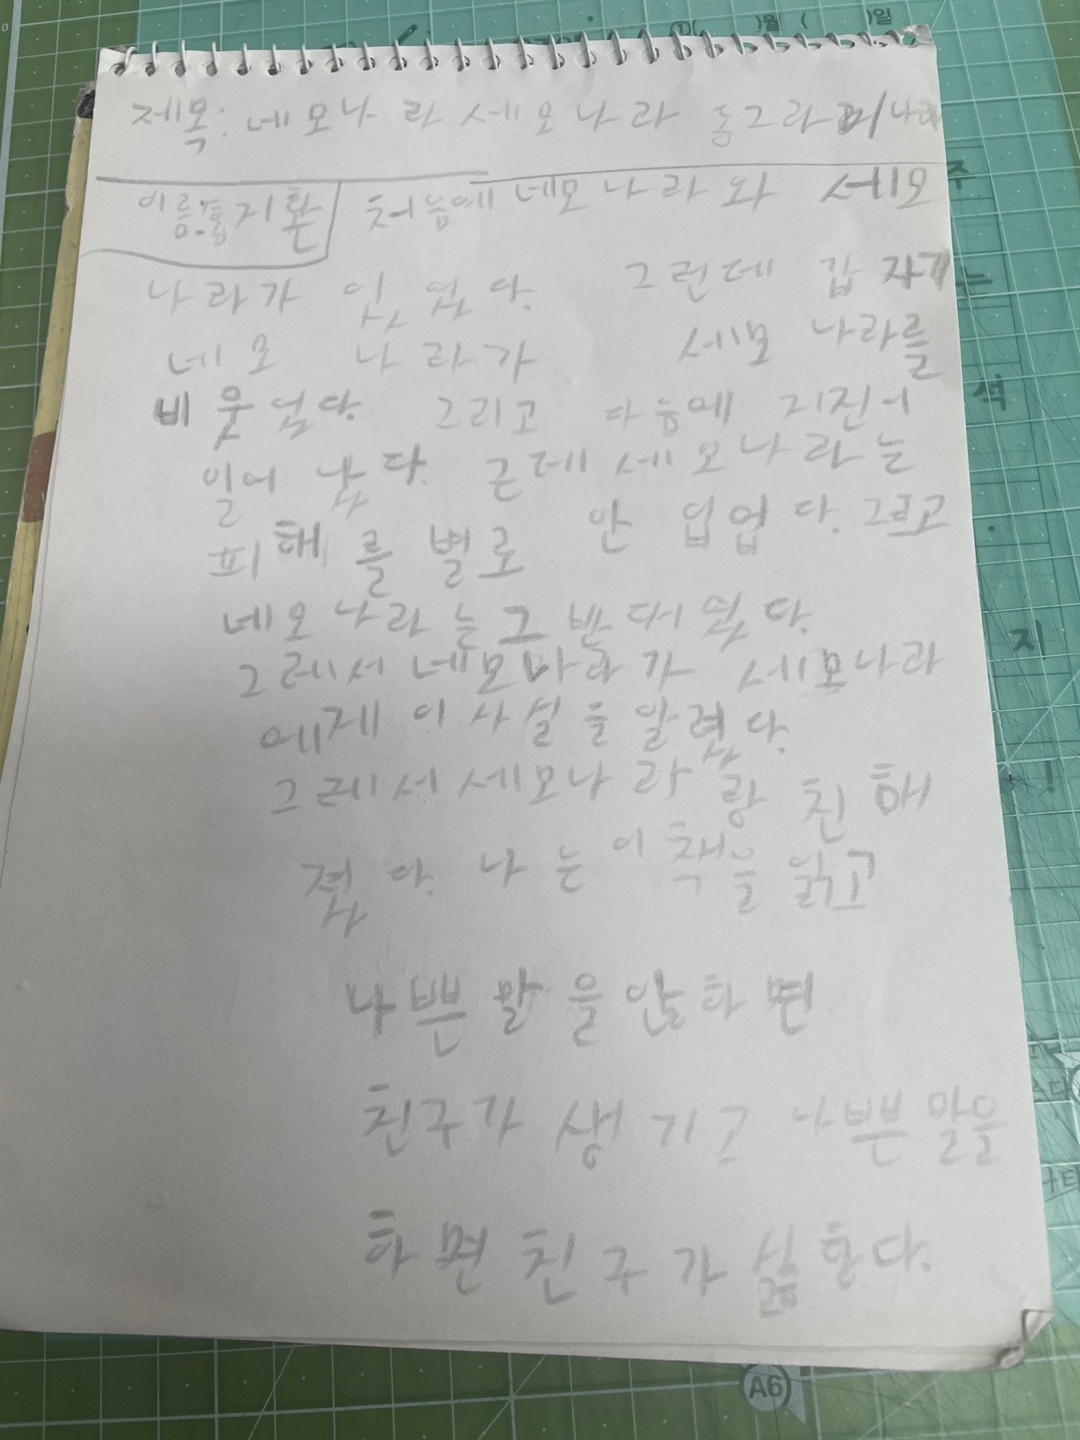 ①( )월 ( )일
제목: 네모나라 세모나라 동그라미나라
이름:홍지환 처음에 네모나라와 세모
나라가 있었다. 그런데 갑자기
네모 나라가 세모 나라를
비웃었다. 그리고 다음에 지진이
일어났다. 근데 세모나라는
피해를 별로 안 입업다. 그리고
네모나라는 그 반대였다.
그레서 네모나라가 세모나라
에게 이 사실을 알렸다.
그레서 세모나라랑 친해
졌다. 나는 이 책을 읽고
나쁜 말을 않하면
친구가 생기고 나쁜말을
하면 친구가 싫어한다.
주
는
석
지
!
A6